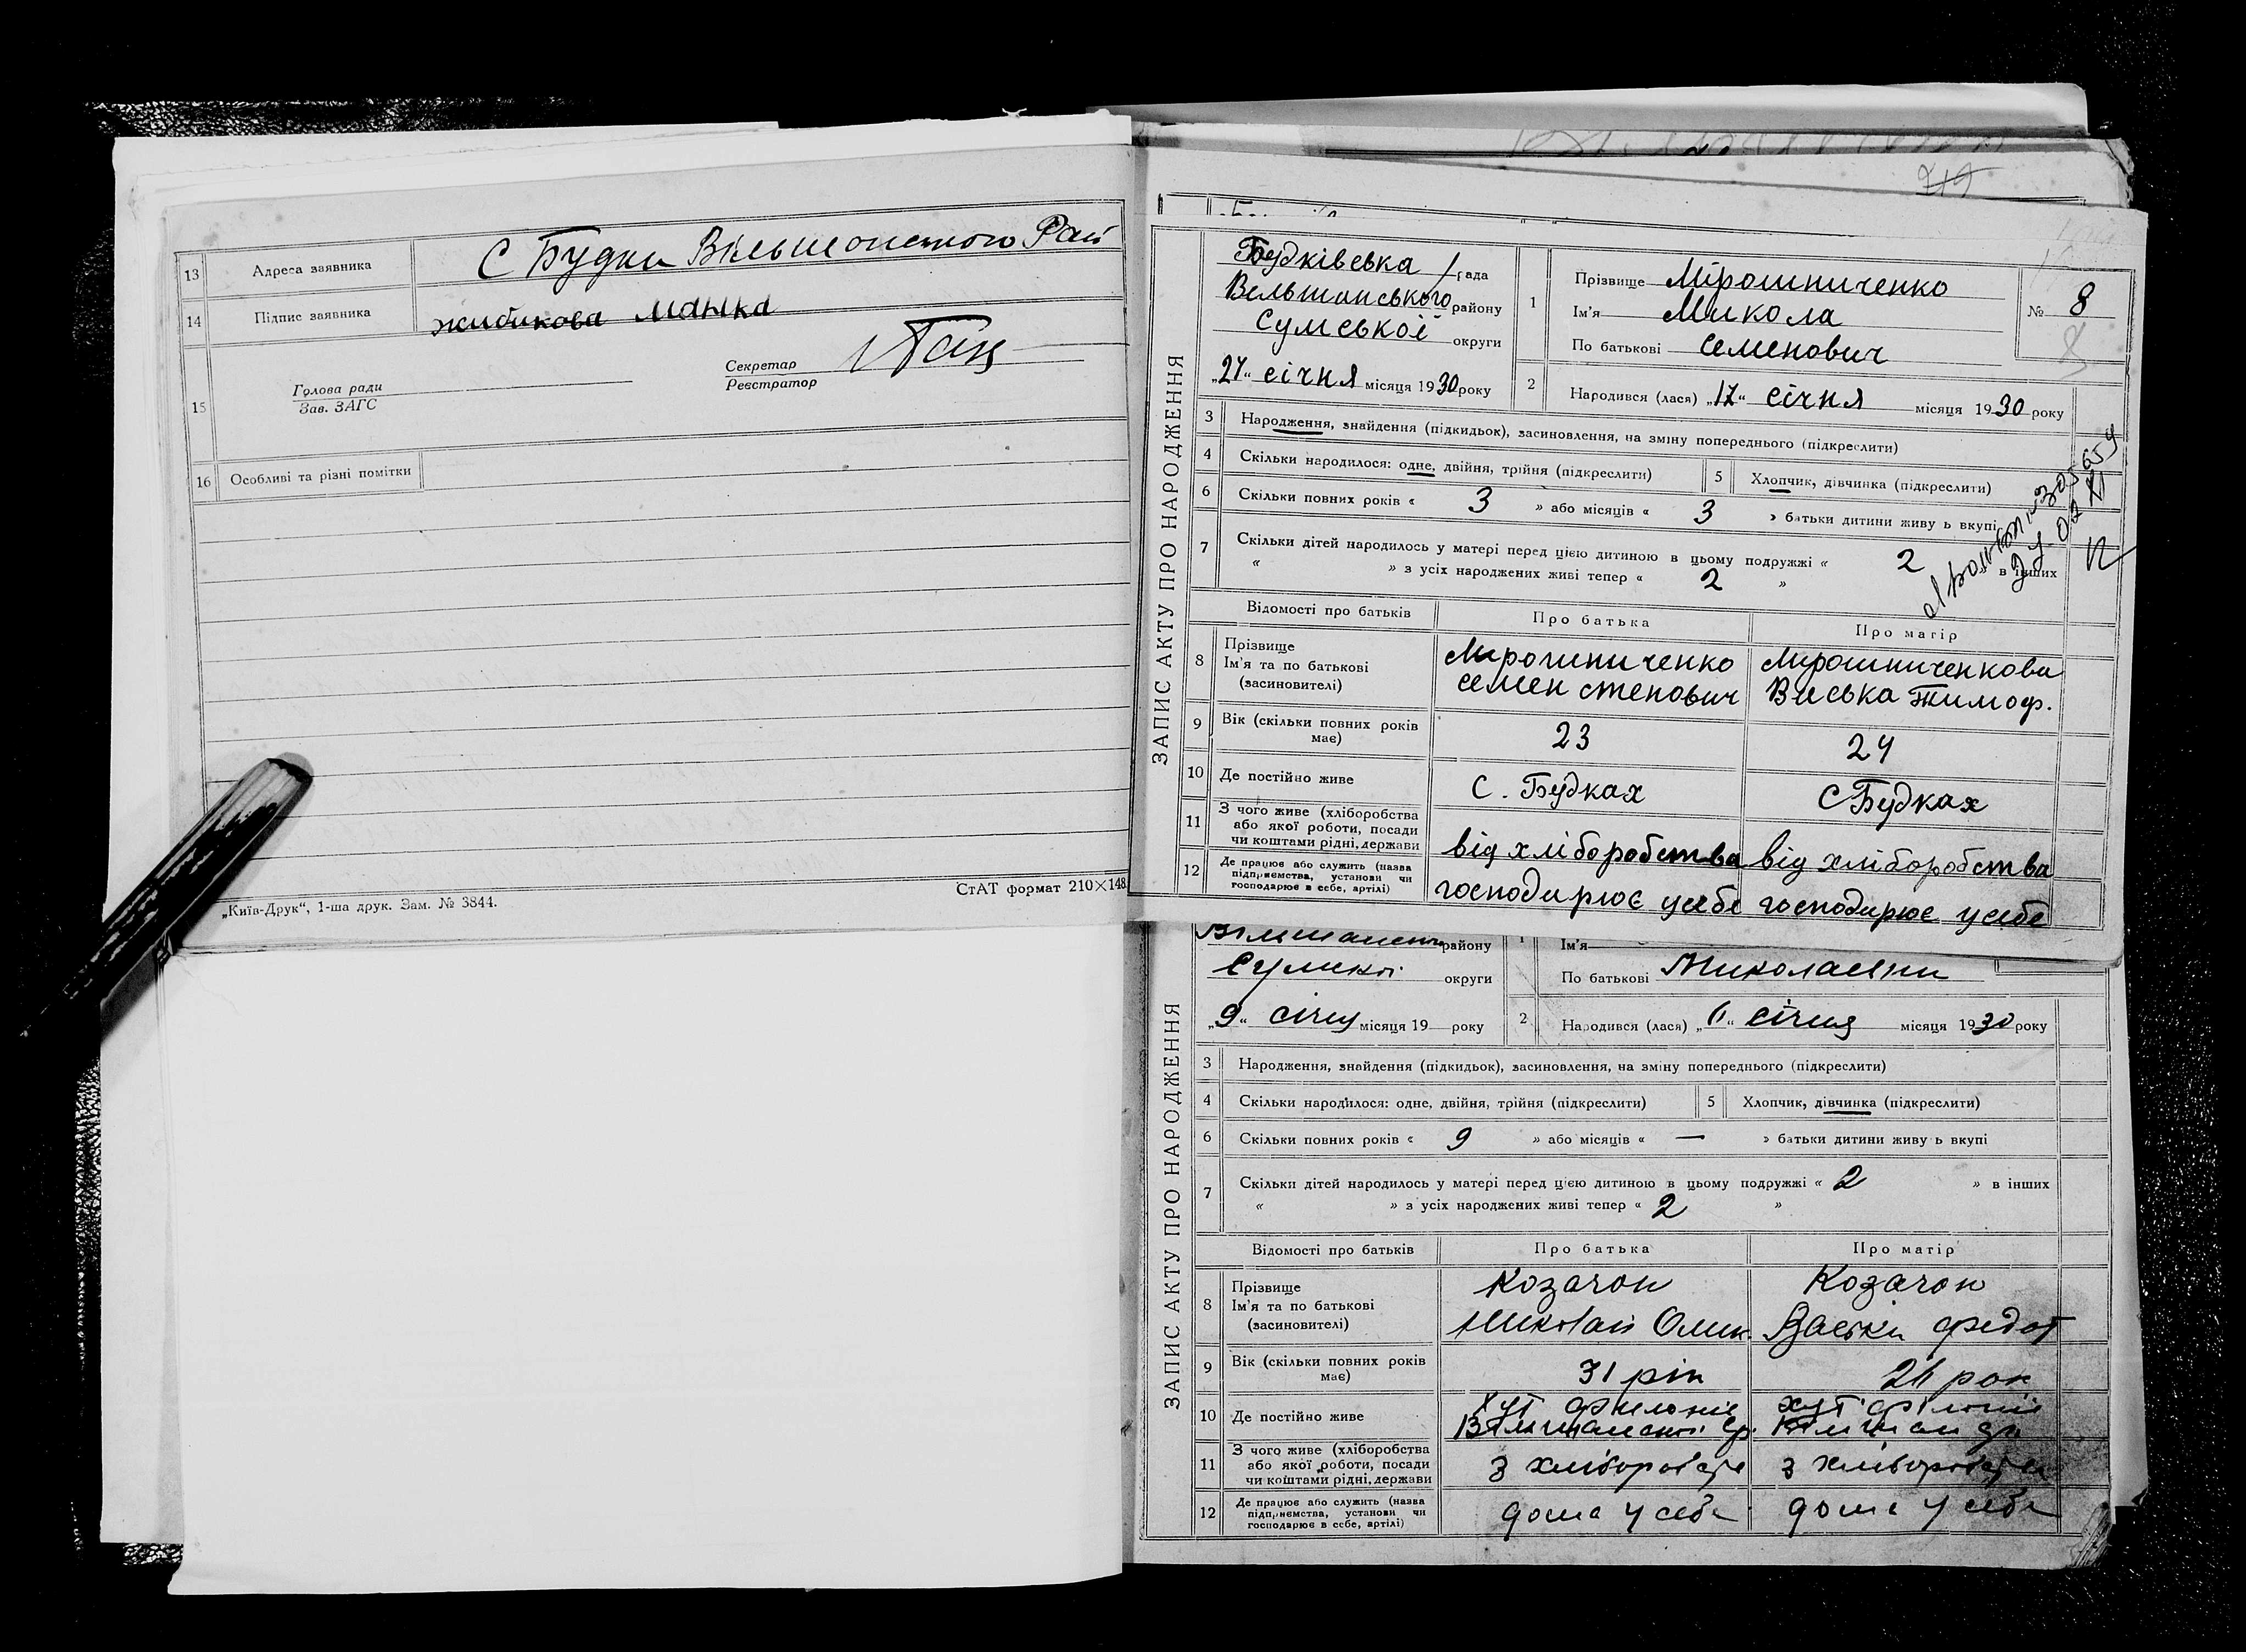 13 Адреса заявника С Будки Вільшанського Рай
14 Підпис заявника жибикова Манька
15 Голова ради
Зав. ЗАГС
Секретар
Реєстратор
16 Особливі та різні помітки
СтАТ формат 210×148.
„Київ-Друк“, 1-ша друк. Зам. № 3844.
ЗАПИС АКТУ ПРО НАРОДЖЕННЯ
Будківська рада
Вельшанського району
Сумської округи
„27“ січня місяця 1930 року
1 Прізвище Мірошниченко
Ім'я Микола
По батькові Семенович
№ 8
8
2 Народився (лася) „17“ січня місяця 1930 року
3 Народження, знайдення (підкидьок), засиновлення, на зміну попереднього (підкреслити)
4 Скільки народилося: одне, двійня, трійня (підкреслити) 5 Хлопчик, дівчинка (підкреслити)
6 Скільки повних років « 3 » або місяців « 3 » батьки дитини живу ь вкупі
7 Скільки дітей народилось у матері перед цією дитиною в цьому подружжі « 2 » в інших
« » з усіх народжених живі тепер « 2 »
Відомості про батьків Про батька Про матір
8 Прізвище
Ім'я та по батькові
(засиновителі)
Мирошниченко
семен степович
Мирошниченкова
Виська Тимоф.
9 Вік (скільки повних років має) 23 24
10 Де постійно живе С. Будках С Будках
11 З чого живе (хліборобства
або якої роботи, посади
чи коштами рідні, держави
від хліборобства від хліборобства
12 Де працює або служить (назва
підприємства, установи чи
господарює в себе, артілі)
господирює усебе господирює усебе
ЗАПИС АКТУ ПРО НАРОДЖЕННЯ
району
Сумської округи
„9“ січня місяця 19 року
1 Ім'я
По батькові Миколаевни
2 Народився (лася) „6“ січня місяця 1930 року
3 Народження, знайдення (підкидьок), засиновлення, на зміну попереднього (підкреслити)
4 Скільки народилося: одне, двійня, трійня (підкреслити) 5 Хлопчик, дівчинка (підкреслити)
6 Скільки повних років « 9 » або місяців « — » батьки дитини живу ь вкупі
7 Скільки дітей народилось у матері перед цією дитиною в цьому подружжі « 2 » в інших
« » з усіх народжених живі тепер « 2 »
Відомості про батьків Про батька Про матір
8 Прізвище
Ім'я та по батькові
(засиновителі)
Козачок
Николай Омик.
Козачок
Васьки Федот
9 Вік (скільки повних років має) 31 рік рок
10 Де постійно живе хут хут
11 З чого живе (хліборобства
або якої роботи, посади
чи коштами рідні, держави
з хліборобства з хліборобства
12 Де працює або служить (назва
підприємства, установи чи
господарює в себе, артілі)
дома у себе дома у себе